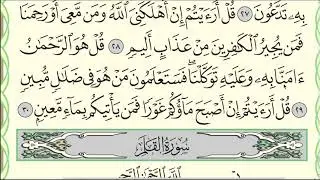 بِهِۦ تَدَّعُونَ ٢٧ قُلْ أَرَءَيْتُمْ إِنْ أَهْلَكَنِىَ ٱللَّهُ وَمَن مَّعِىَ أَوْ رَحِمَنَا
فَمَن يُجِيرُ ٱلْكَٰفِرِينَ مِنْ عَذَابٍ أَلِيمٍ ٢٨ قُلْ هُوَ ٱلرَّحْمَٰنُ
ءَامَنَّا بِهِۦ وَعَلَيْهِ تَوَكَّلْنَا فَسَتَعْلَمُونَ مَنْ هُوَ فِى ضَلَٰلٍ مُّبِينٍ
٢٩ قُلْ أَرَءَيْتُمْ إِنْ أَصْبَحَ مَآؤُكُمْ غَوْرًا فَمَن يَأْتِيكُم بِمَآءٍ مَّعِينٍۭ ٣٠
سُورَةُ القَلَمِ
بِسْمِ ٱللَّهِ ٱلرَّحْمَٰنِ ٱلرَّحِيمِ